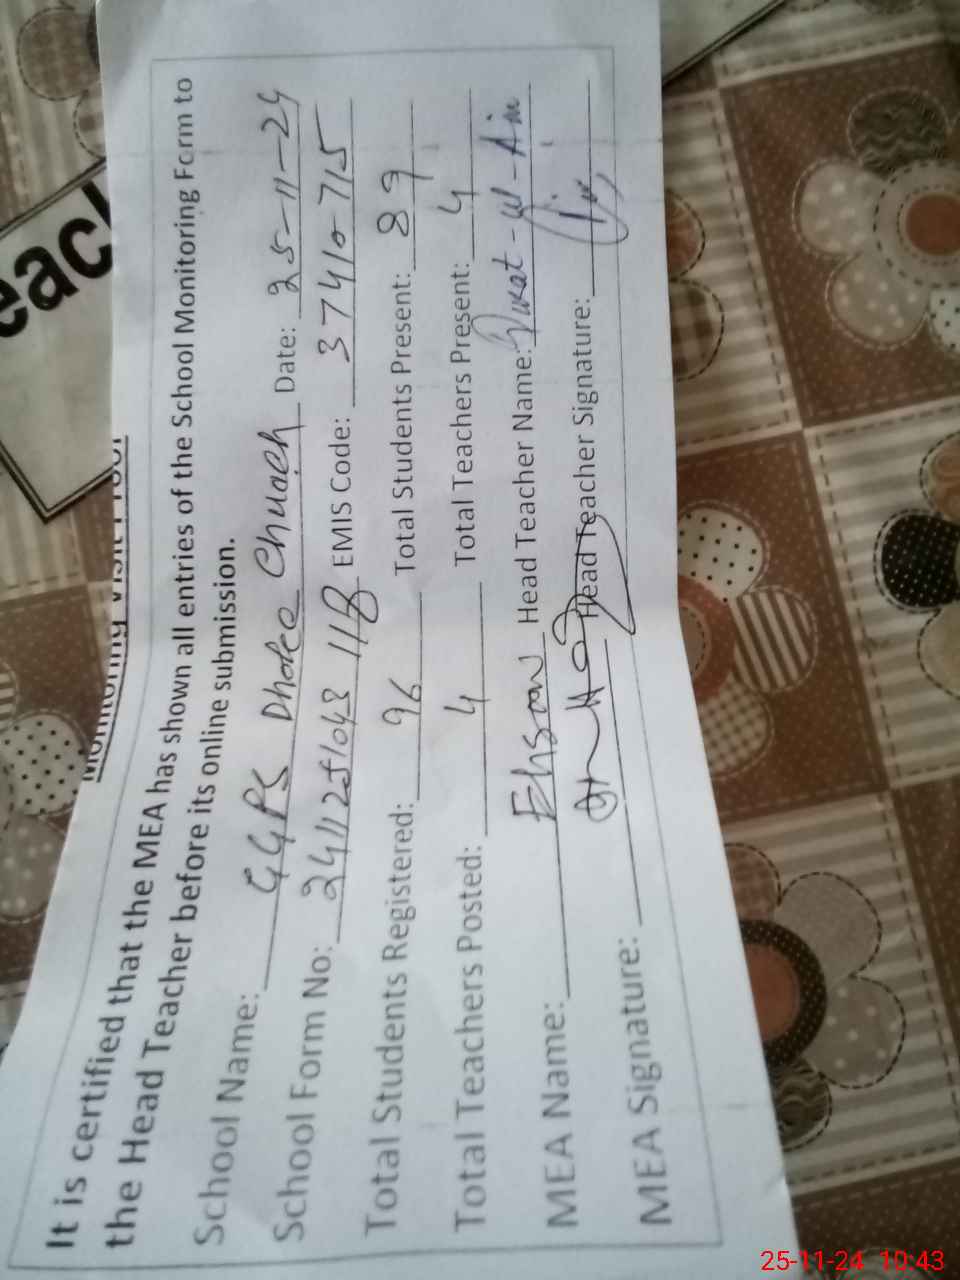 each
Monitoring Visit Tool
It is certified that the MEA has shown all entries of the School Monitoring Form to
the Head Teacher before its online submission.
School Name: GGPS Dhoke Chuach Date: 25-11-24
School Form No: EMIS Code: 37410-715
Total Students Registered: 96 Total Students Present: 89
Total Teachers Posted: 4 Total Teachers Present: 4
MEA Name: Ehsan Head Teacher Name: -ul-Ain
MEA Signature: Head Teacher Signature:
25-11-24 10:43